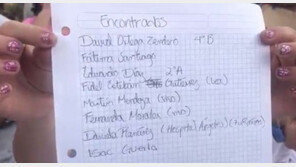 Encontrados
David Ortega Zendero 4°B
Fátima Santiago
Eduardo Díaz 2°A
Fidel Esteban
Martín Mendoza (vivo)
Fernanda Morales (vivo)
Daniela (Hospital Angeles)
Isac Guerra